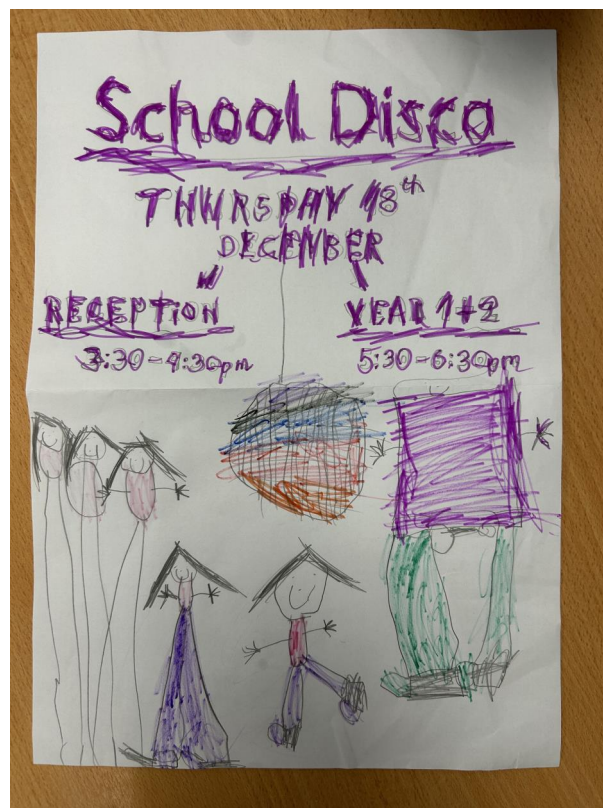 School Disco
THURSDAY 18th
DECEMBER
RECEPTION
YEAR 1+2
3:30-4:30pm
5:30-6:30pm